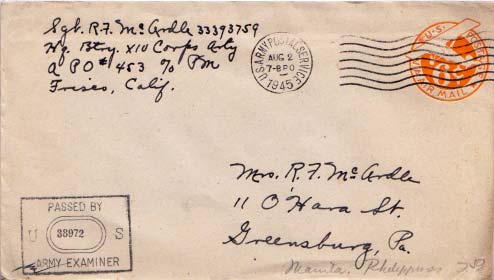 Sgt. R.F. McArdle 33393759
Hq. Btry. XIV Corps Arty
APO #453 % PM
Frisco, Calif.
U.S. ARMY POSTAL SERVICE
AUG 2
7-8 PO
1945
U.S. POSTAGE
VIA AIR MAIL
Mrs. R.F. McArdle
11 O'Hara St.
Greensburg, Pa.
Manila, Philippines
PASSED BY
U 38972 S
ARMY EXAMINER